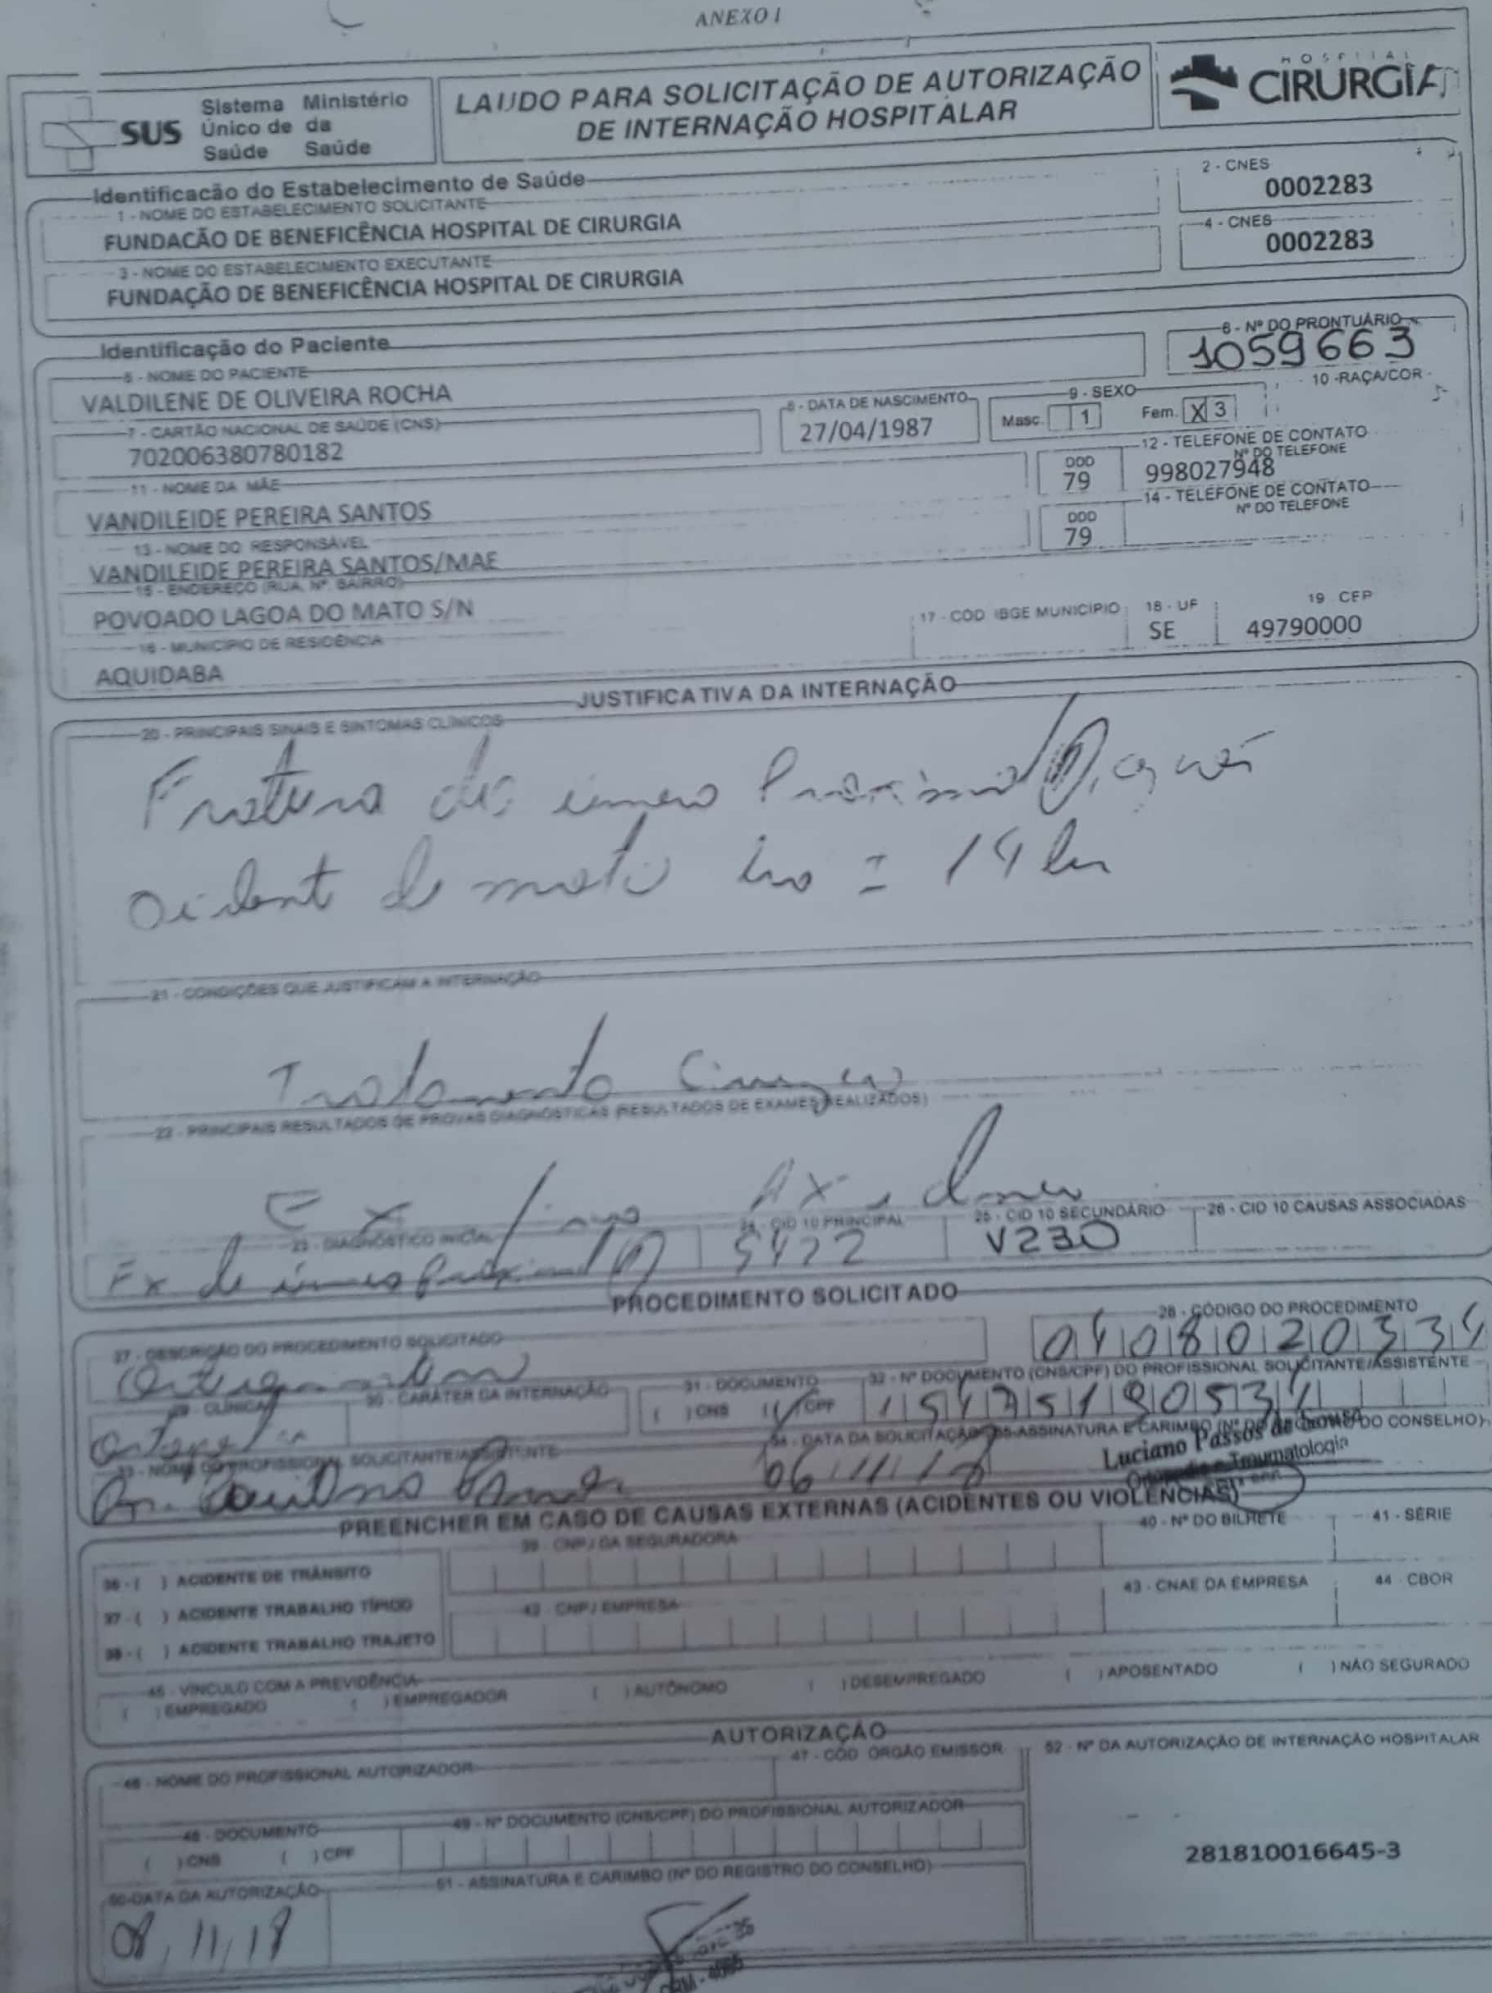 ANEXO I
SUS
Sistema Único de Saúde
Ministério da Saúde
LAUDO PARA SOLICITAÇÃO DE AUTORIZAÇÃO
DE INTERNAÇÃO HOSPITALAR
HOSPITAL
CIRURGIA
Identificacão do Estabelecimento de Saúde
1 - NOME DO ESTABELECIMENTO SOLICITANTE
FUNDACÃO DE BENEFICÊNCIA HOSPITAL DE CIRURGIA
2 - CNES
0002283
3 - NOME DO ESTABELECIMENTO EXECUTANTE
FUNDAÇÃO DE BENEFICÊNCIA HOSPITAL DE CIRURGIA
4 - CNES
0002283
Identificação do Paciente
5 - NOME DO PACIENTE
VALDILENE DE OLIVEIRA ROCHA
6 - Nº DO PRONTUÁRIO
1059663
7 - CARTÃO NACIONAL DE SAÚDE (CNS)
702006380780182
8 - DATA DE NASCIMENTO
27/04/1987
9 - SEXO
Masc. 1 Fem. X 3
10 - RAÇA/COR
11 - NOME DA MÃE
VANDILEIDE PEREIRA SANTOS
12 - TELEFONE DE CONTATO
DDD Nº DO TELEFONE
79 998027948
13 - NOME DO RESPONSÁVEL
VANDILEIDE PEREIRA SANTOS/MAE
14 - TELEFONE DE CONTATO
DDD Nº DO TELEFONE
79
15 - ENDEREÇO (RUA, Nº, BAIRRO)
POVOADO LAGOA DO MATO S/N
16 - MUNICÍPIO DE RESIDÊNCIA
AQUIDABA
17 - CÓD IBGE MUNICÍPIO
18 - UF
SE
19 CEP
49790000
JUSTIFICATIVA DA INTERNAÇÃO
20 - PRINCIPAIS SINAIS E SINTOMAS CLÍNICOS
Fratura do úmero Proximal
de moto 14
21 - CONDIÇÕES QUE JUSTIFICAM A INTERNAÇÃO
Tratamento Cirurgico
22 - PRINCIPAIS RESULTADOS DE PROVAS DIAGNÓSTICAS (RESULTADOS DE EXAMES REALIZADOS)
23 - DIAGNÓSTICO INICIAL
Fx de úmero proximal
24 - CID 10 PRINCIPAL
S422
25 - CID 10 SECUNDÁRIO
V230
26 - CID 10 CAUSAS ASSOCIADAS
PROCEDIMENTO SOLICITADO
27 - DESCRIÇÃO DO PROCEDIMENTO SOLICITADO
28 - CÓDIGO DO PROCEDIMENTO
0408020334
29 - CLÍNICA
30 - CARÁTER DA INTERNAÇÃO
31 - DOCUMENTO
( ) CNS ( ) CPF
32 - Nº DOCUMENTO (CNS/CPF) DO PROFISSIONAL SOLICITANTE/ASSISTENTE
33 - NOME DO PROFISSIONAL SOLICITANTE/ASSISTENTE
34 - DATA DA SOLICITAÇÃO
06/11/18
35-ASSINATURA E CARIMBO (Nº DO REGISTRO DO CONSELHO)
Luciano Passos de
Ortopedia e Traumatologia
PREENCHER EM CASO DE CAUSAS EXTERNAS (ACIDENTES OU VIOLÊNCIAS)
36 - ( ) ACIDENTE DE TRÂNSITO
37 - ( ) ACIDENTE TRABALHO TÍPICO
38 - ( ) ACIDENTE TRABALHO TRAJETO
39 - CNPJ DA SEGURADORA
40 - Nº DO BILHETE
41 - SÉRIE
42 - CNPJ EMPRESA
43 - CNAE DA EMPRESA
44 - CBOR
45 - VÍNCULO COM A PREVIDÊNCIA
( ) EMPREGADO ( ) EMPREGADOR ( ) AUTÔNOMO ( ) DESEMPREGADO ( ) APOSENTADO ( ) NÃO SEGURADO
AUTORIZAÇÃO
46 - NOME DO PROFISSIONAL AUTORIZADOR
47 - CÓD ORGÃO EMISSOR
52 - Nº DA AUTORIZAÇÃO DE INTERNAÇÃO HOSPITALAR
281810016645-3
48 - DOCUMENTO
( ) CNS ( ) CPF
49 - Nº DOCUMENTO (CNS/CPF) DO PROFISSIONAL AUTORIZADOR
50-DATA DA AUTORIZAÇÃO
08/11/18
51 - ASSINATURA E CARIMBO (Nº DO REGISTRO DO CONSELHO)